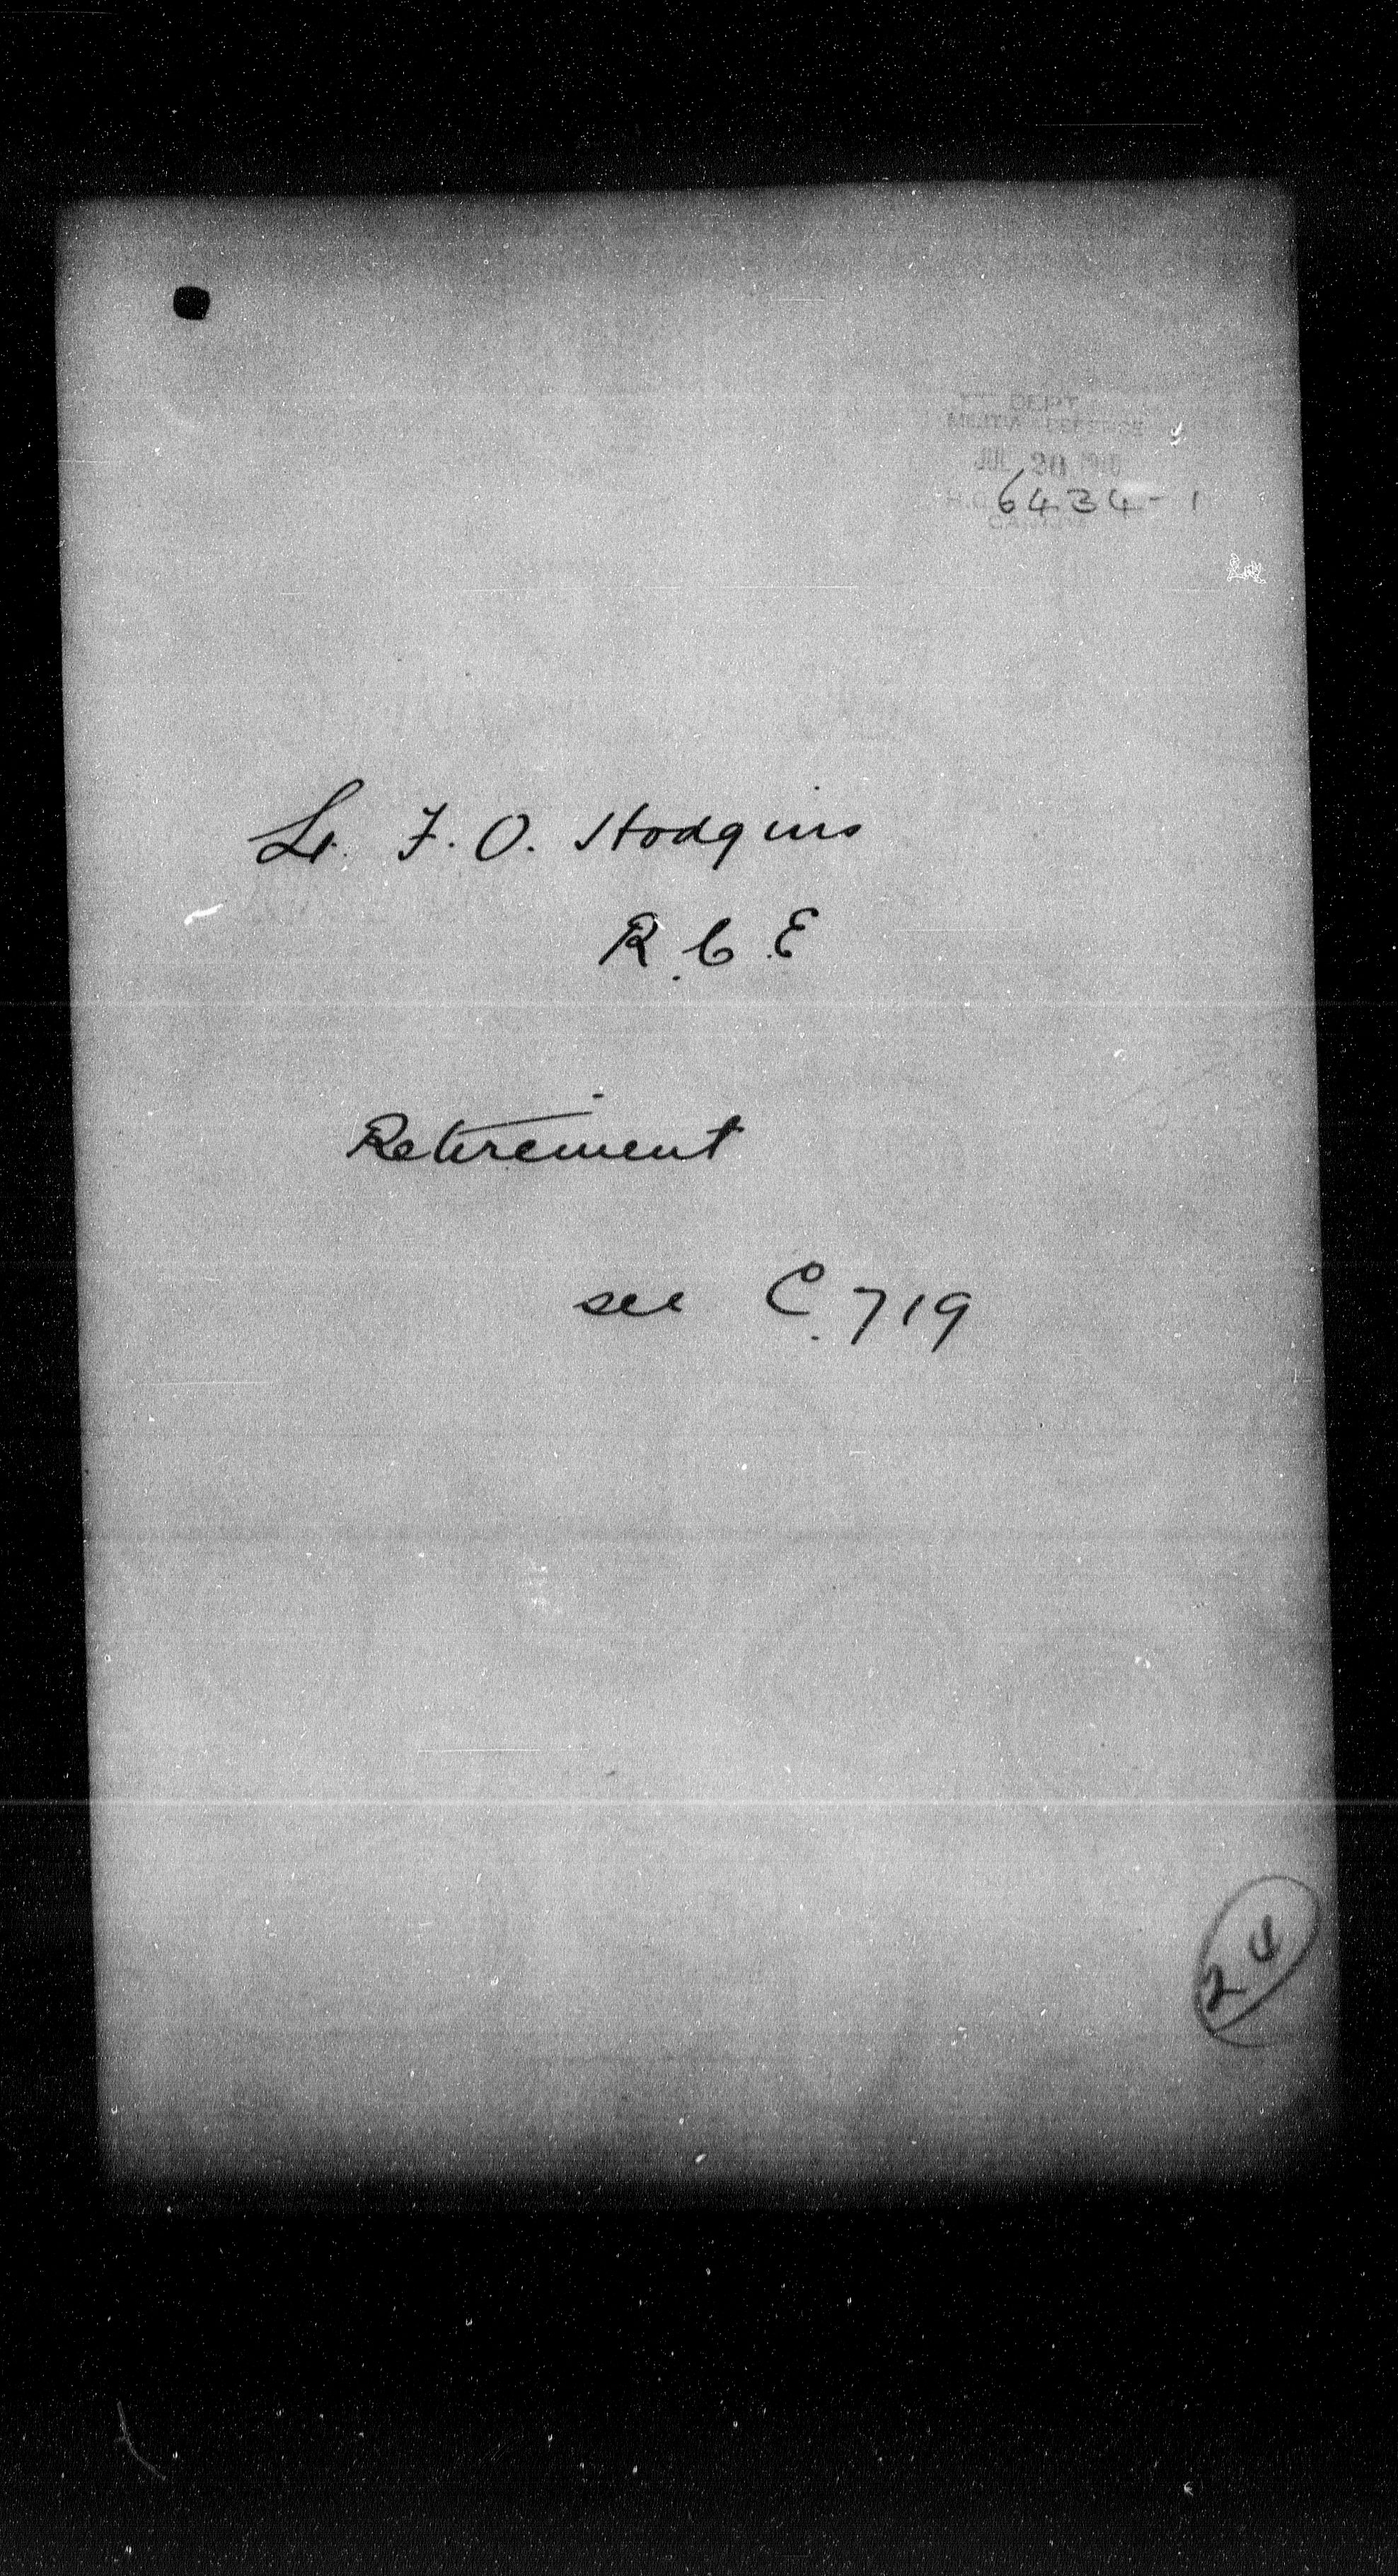 DEPT
MILITIA & DEFENCE
JUL 20
H.Q. 6434-1
CANADA
Lt. F. O. Hodgins
R.C.E
Retirement
see C.719
24